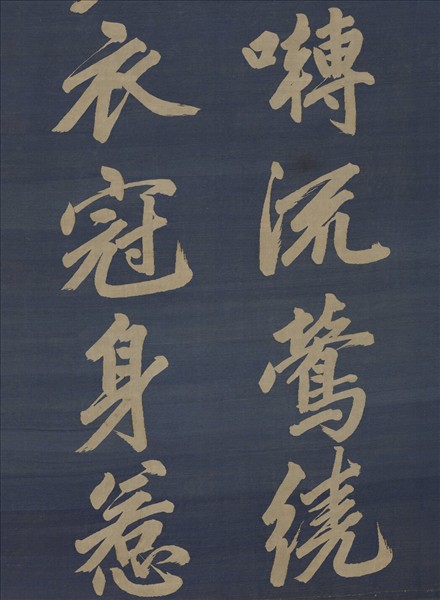 囀流鶯繞
衣冠身惹